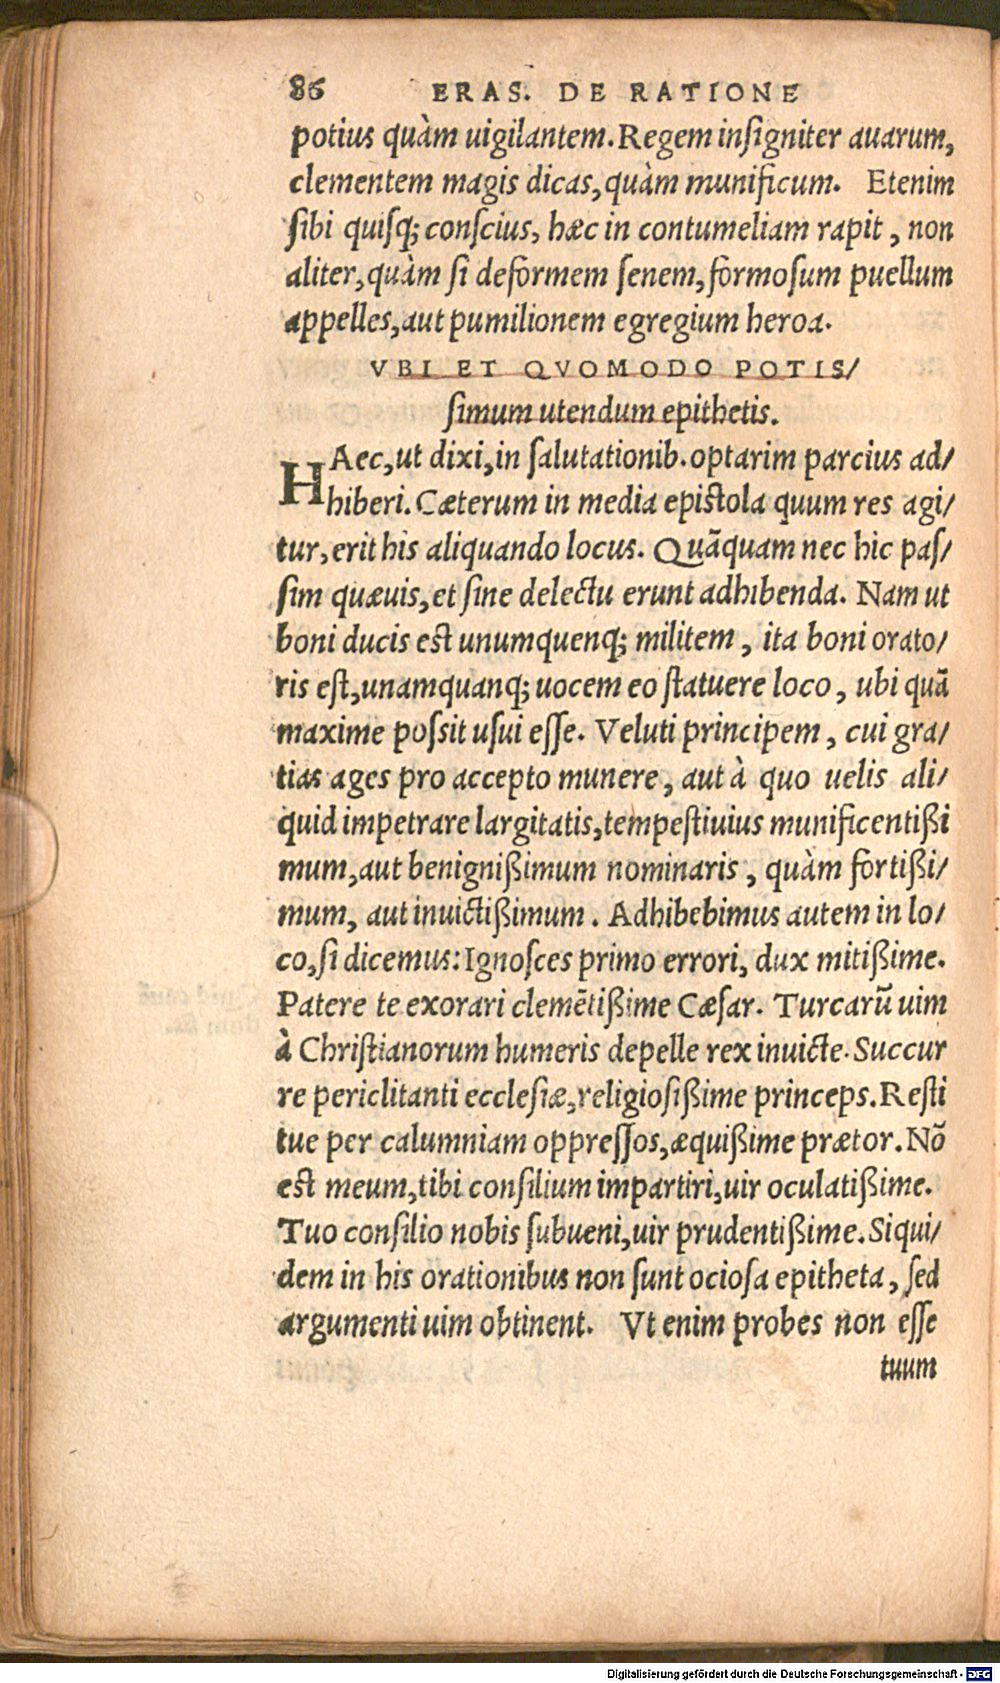 86 ERAS. DE RATIONE
potius quàm uigilantem. Regem insigniter auarum,
clementem magis dicas, quàm munificum. Etenim
sibi quisq; conscius, hæc in contumeliam rapit, non
aliter, quàm si deformem senem, formosum puellum
appelles, aut pumilionem egregium heroa.
VBI ET QVOMODO POTIS/
simum utendum epithetis.
HAec, ut dixi, in salutationib. optarim parcius ad/
hiberi. Cæterum in media epistola quum res agi/
tur, erit his aliquando locus. Quãquam nec hic pas/
sim quæuis, et sine delectu erunt adhibenda. Nam ut
boni ducis est unumquenq; militem, ita boni orato/
ris est, unamquanq; uocem eo statuere loco, ubi quã
maxime possit usui esse. Veluti principem, cui gra/
tias ages pro accepto munere, aut à quo uelis ali/
quid impetrare largitatis, tempestiuius munificentißi
mum, aut benignißimum nominaris, quàm fortißi/
mum, aut inuictißimum. Adhibebimus autem in lo/
co, si dicemus: Ignosces primo errori, dux mitißime.
Patere te exorari clemẽtißime Cæsar. Turcarũ uim
à Christianorum humeris depelle rex inuicte. Succur
re periclitanti ecclesiæ, religiosißime princeps. Resti
tue per calumniam oppressos, æquißime prætor. Nõ
est meum, tibi consilium impartiri, uir oculatißime.
Tuo consilio nobis subueni, uir prudentißime. Siqui/
dem in his orationibus non sunt ociosa epitheta, sed
argumenti uim obtinent. Vt enim probes non esse
tuum
Digitalisierung gefördert durch die Deutsche Forschungsgemeinschaft - DFG